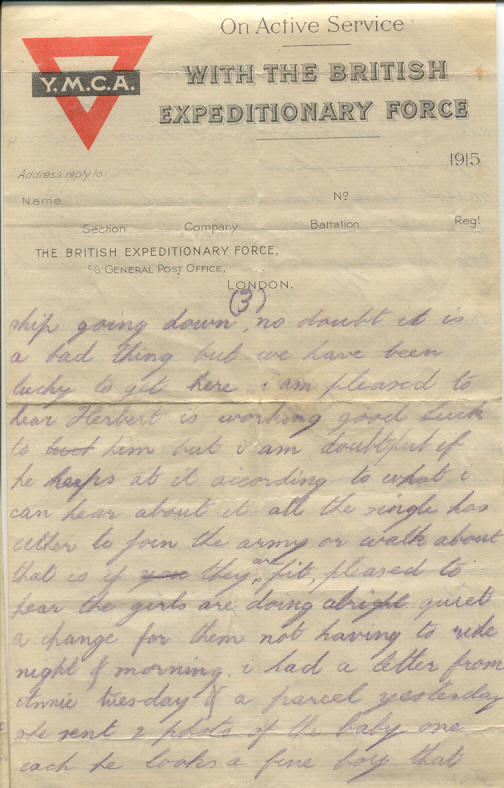 On Active Service
WITH THE BRITISH
EXPEDITIONARY FORCE
Y.M.C.A.
1915
Address reply to:
Name
No
Section Company Battalion Regt
THE BRITISH EXPEDITIONARY FORCE,
c/o GENERAL POST OFFICE,
LONDON.
(3)
ship going down, no doubt it is
a bad thing but we have been
lucky to get here i am pleased to
hear Herbert is working good luck
to him but i am doubtful if
he keeps at it according to what i
can hear about it all the single has
either to join the army or walk about
that is if they are fit, pleased to
hear the girls are doing alright quiet
a change for them not having to ride
night & morning, i had a letter from
Annie tuesday & a parcel yesterday
she sent 2 photos of the baby one
each he looks a fine boy that